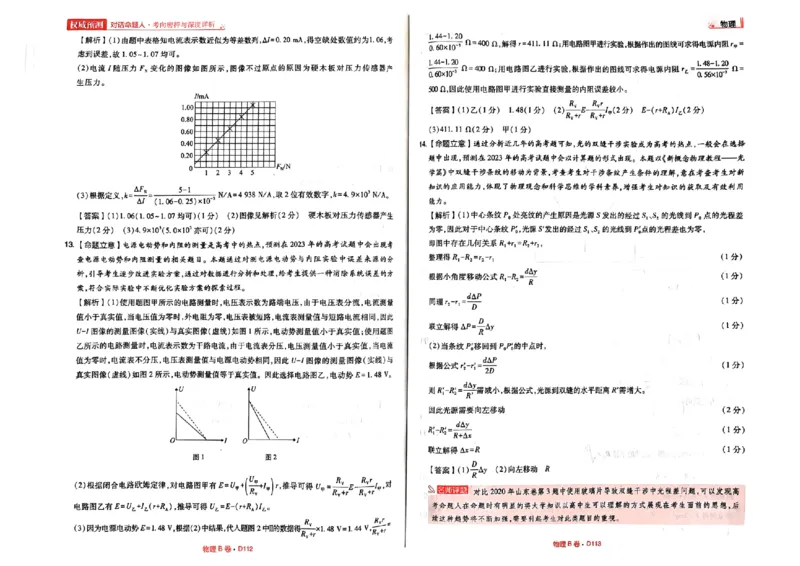 权威预测 对话命题人·考向密押与深度评析
【解析】(1)由题中表格知电流表示数近似为等差数列,ΔI=0.20 mA,得空缺处数值约为1.06,考
虑到误差,故1.05~1.07均可。
(2)电流 I 随压力 F_N 变化的图像如图所示,图像不过原点的原因为硬木板对压力传感器产
生压力。
I/mA
1.00
0.80
0.60
0.40
0.20
0 1 2 3 4 5 F_N/N
(3)根据定义,k=ΔF_N/ΔI=(5-1)/((1.06-0.25)×10⁻³) N/A=4 938 N/A,取2位有效数字,k=4.9×10³ N/A。
【答案】(1)1.06(1.05~1.07均可)(1分) (2)图像见解析(2分) 硬木板对压力传感器产生
压力(2分) (3)4.9×10³(5.0×10³亦可)(2分)
13.【命题立意】电源电动势和内阻的测量是高考中的热点,预测在2023年的高考试题中会出现考
查电源电动势和内阻测量的相关题目。本题通过对测电源电动势与内阻实验中误差来源的分
析,引导考生逐步改进实验方案,通过对数据进行分析和处理,给考生提供一种消除系统误差的方
案,符合实际实验中不断优化实验方案的探索过程。
【解析】(1)使用题图甲所示的电路测量时,电压表示数为路端电压,由于电压表分流,电流测量
值小于真实值,当电压值为零时,外电阻为零,电压表被短路,电流表测量值与短路电流相同,因此
U-I图像的测量图像(实线)与真实图像(虚线)如图1所示,电动势测量值小于真实值;使用题图
乙所示的电路测量时,电流表示数为干路电流,由于电流表分压,电压测量值小于真实值,当电流
值为零时,电流表不分压,电压表测量值与电源电动势相同,因此U-I图像的测量图像(实线)与
真实图像(虚线)如图2所示,电动势测量值等于真实值。因此选择电路图乙,电动势E=1.48 V。
U U
O I O I
图1 图2
(2)根据闭合电路欧姆定律,对电路图甲有E=U_甲+(U_甲/R_V+I_甲)r,推导可得U_甲=R_V/(R_V+r)E-R_Vr/(R_V+r)I_甲,对
电路图乙有E=U_乙+I_乙(r+R_A),推导可得U_乙=E-(r+R_A)I_乙。
(3)因为电源电动势E=1.48 V,根据(2)中结果,代入题图2中的数据得R_V/(R_V+r)×1.48 V=1.44 V,R_Vr/(R_V+r)=
物理B卷·D112
物理
(1.44-1.20)/(0.60×10⁻³) Ω=400 Ω,解得r=411.11 Ω;用电路图甲进行实验,根据作出的图线可求得电源内阻r_甲=
(1.44-1.20)/(0.60×10⁻³) Ω=400 Ω;用电路图乙进行实验,根据作出的图线可求得电源内阻r_乙=(1.48-1.20)/(0.56×10⁻³) Ω=
500 Ω,因此使用电路图甲进行实验直接测量的内阻误差较小。
【答案】(1)乙(1分) 1.48(1分) (2)R_V/(R_V+r)E-R_Vr/(R_V+r)I_甲(2分) E-(r+R_A)I_乙(2分)
(3)411.11 Ω(2分) 甲(1分)
14.【命题立意】通过分析近几年的高考题可知,光的双缝干涉实验成为高考的热点,一般会在选择
题中出现,预测在2023年的高考试题中会以计算题的形式出现。本题以《新概念物理教程——光
学篇》中双缝干涉条纹的移动为背景,考查考生对干涉条纹产生条件的理解,意在考查考生对新
知识的应用能力,体现了物理观念和科学思维的学科素养,增强考生对知识的获取及有效利用
能力。
【解析】(1)中心条纹P₀处亮纹的产生原因是光源S发出的经过S₁、S₂的光线到P₀点的光程差
为零,因此对于中心条纹P₀′,光源S′发出的经过S₁、S₂的光线到P₀′点的光程差也为零,
即图中存在几何关系R₁+r₁=R₂+r₂,
整理得R₁-R₂=r₂-r₁ (1分)
根据小角度移动公式R₁-R₂=dΔy/R (1分)
同理r₂-r₁=dΔP/D (1分)
联立解得ΔP=D/RΔy (1分)
(2)当条纹P₀′移回到P₀P₀′的中点时,
根据公式r₂′-r₁′=dΔP/2D (1分)
则R₁′-R₂′=dΔy/R′需减小,根据公式,光源到双缝的水平距离R′需增大。
因此光源需要向左移动 (2分)
R₁′-R₂′=dΔy/(R+Δx) (1分)
联立解得Δx=R (1分)
【答案】(1)D/RΔy (2)向左移动 R
名师评析 对比2020年山东卷第3题中使用玻璃片导致双缝干涉中光程差问题,可以发现高
考命题人在命题时有侧重的将大学知识以高中生可以理解的方式展现在考生面前的思想,后
续这种趋势将不断加强,需要引起考生对此类题目的重视。
物理B卷·D113